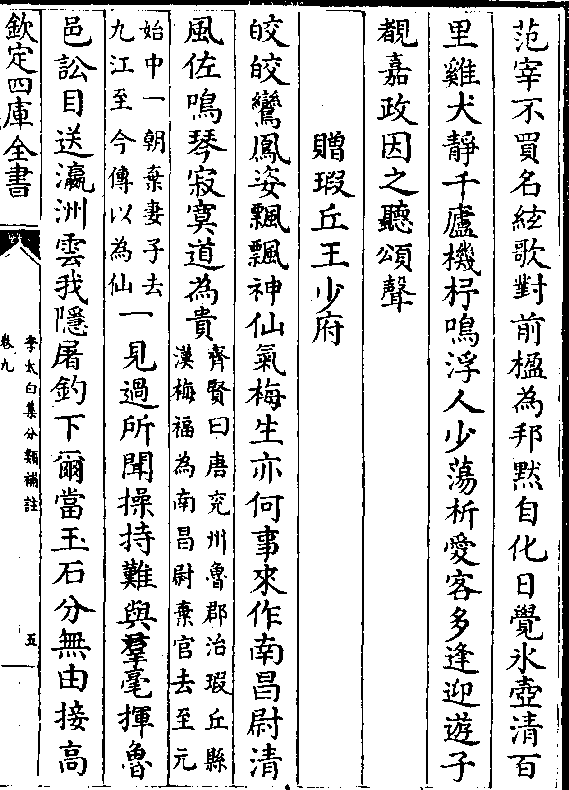 范宰不買名絃歌對前楹為邦黙自化日覺氷壺清百
里雞犬静千廬機杼鳴浮人少蕩析愛客多逢迎遊子
覩嘉政因之聽頌聲
贈瑕丘王少府
皎皎鸞鳳姿飄飄神仙氣梅生亦何事來作南昌尉清
風佐鳴琴寂寞道為貴
齊賢曰唐兖州魯郡治瑕丘縣
漢梅福為南昌尉棄官去至元
始中一朝棄妻子去
九江至今傳以為仙
一見過所聞操持難與羣毫揮魯
邑訟目送瀛洲雲我隱屠釣下爾當玉石分無由接高
欽定四庫全書
李太白集分類補註
卷九
五